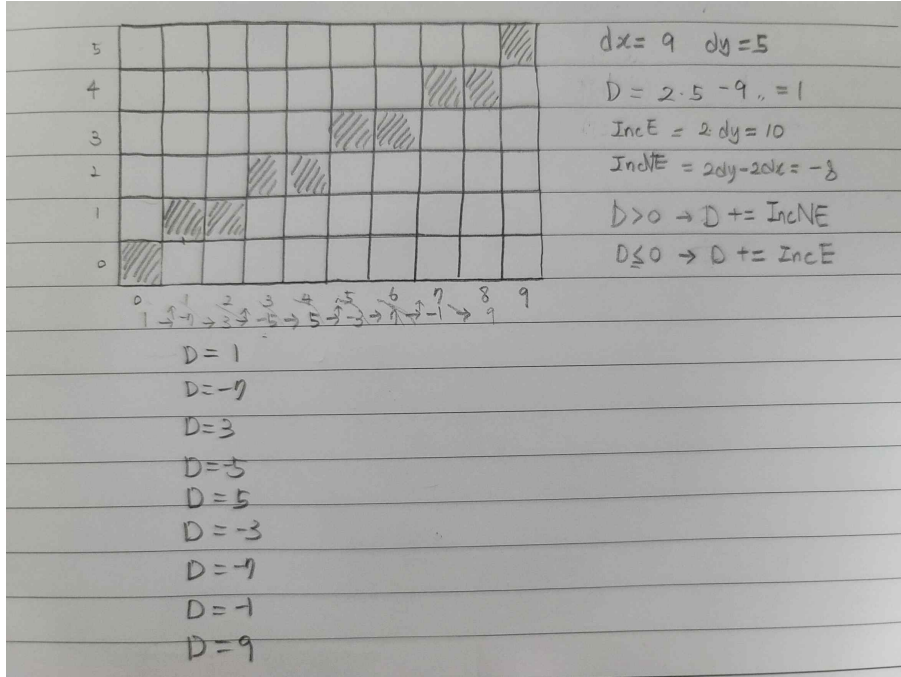 5
4
3
2
1
0
0 1 2 3 4 5 6 7 8 9
1 → -7 → 3 → -5 → 5 → -3 → 7 → -1 → 9
dx = 9 dy = 5
D = 2·5 - 9 = 1
IncE = 2·dy = 10
IncNE = 2dy-2dx = -8
D>0 → D += IncNE
D≤0 → D += IncE
D = 1
D = -7
D = 3
D = -5
D = 5
D = -3
D = -7
D = -1
D = 9